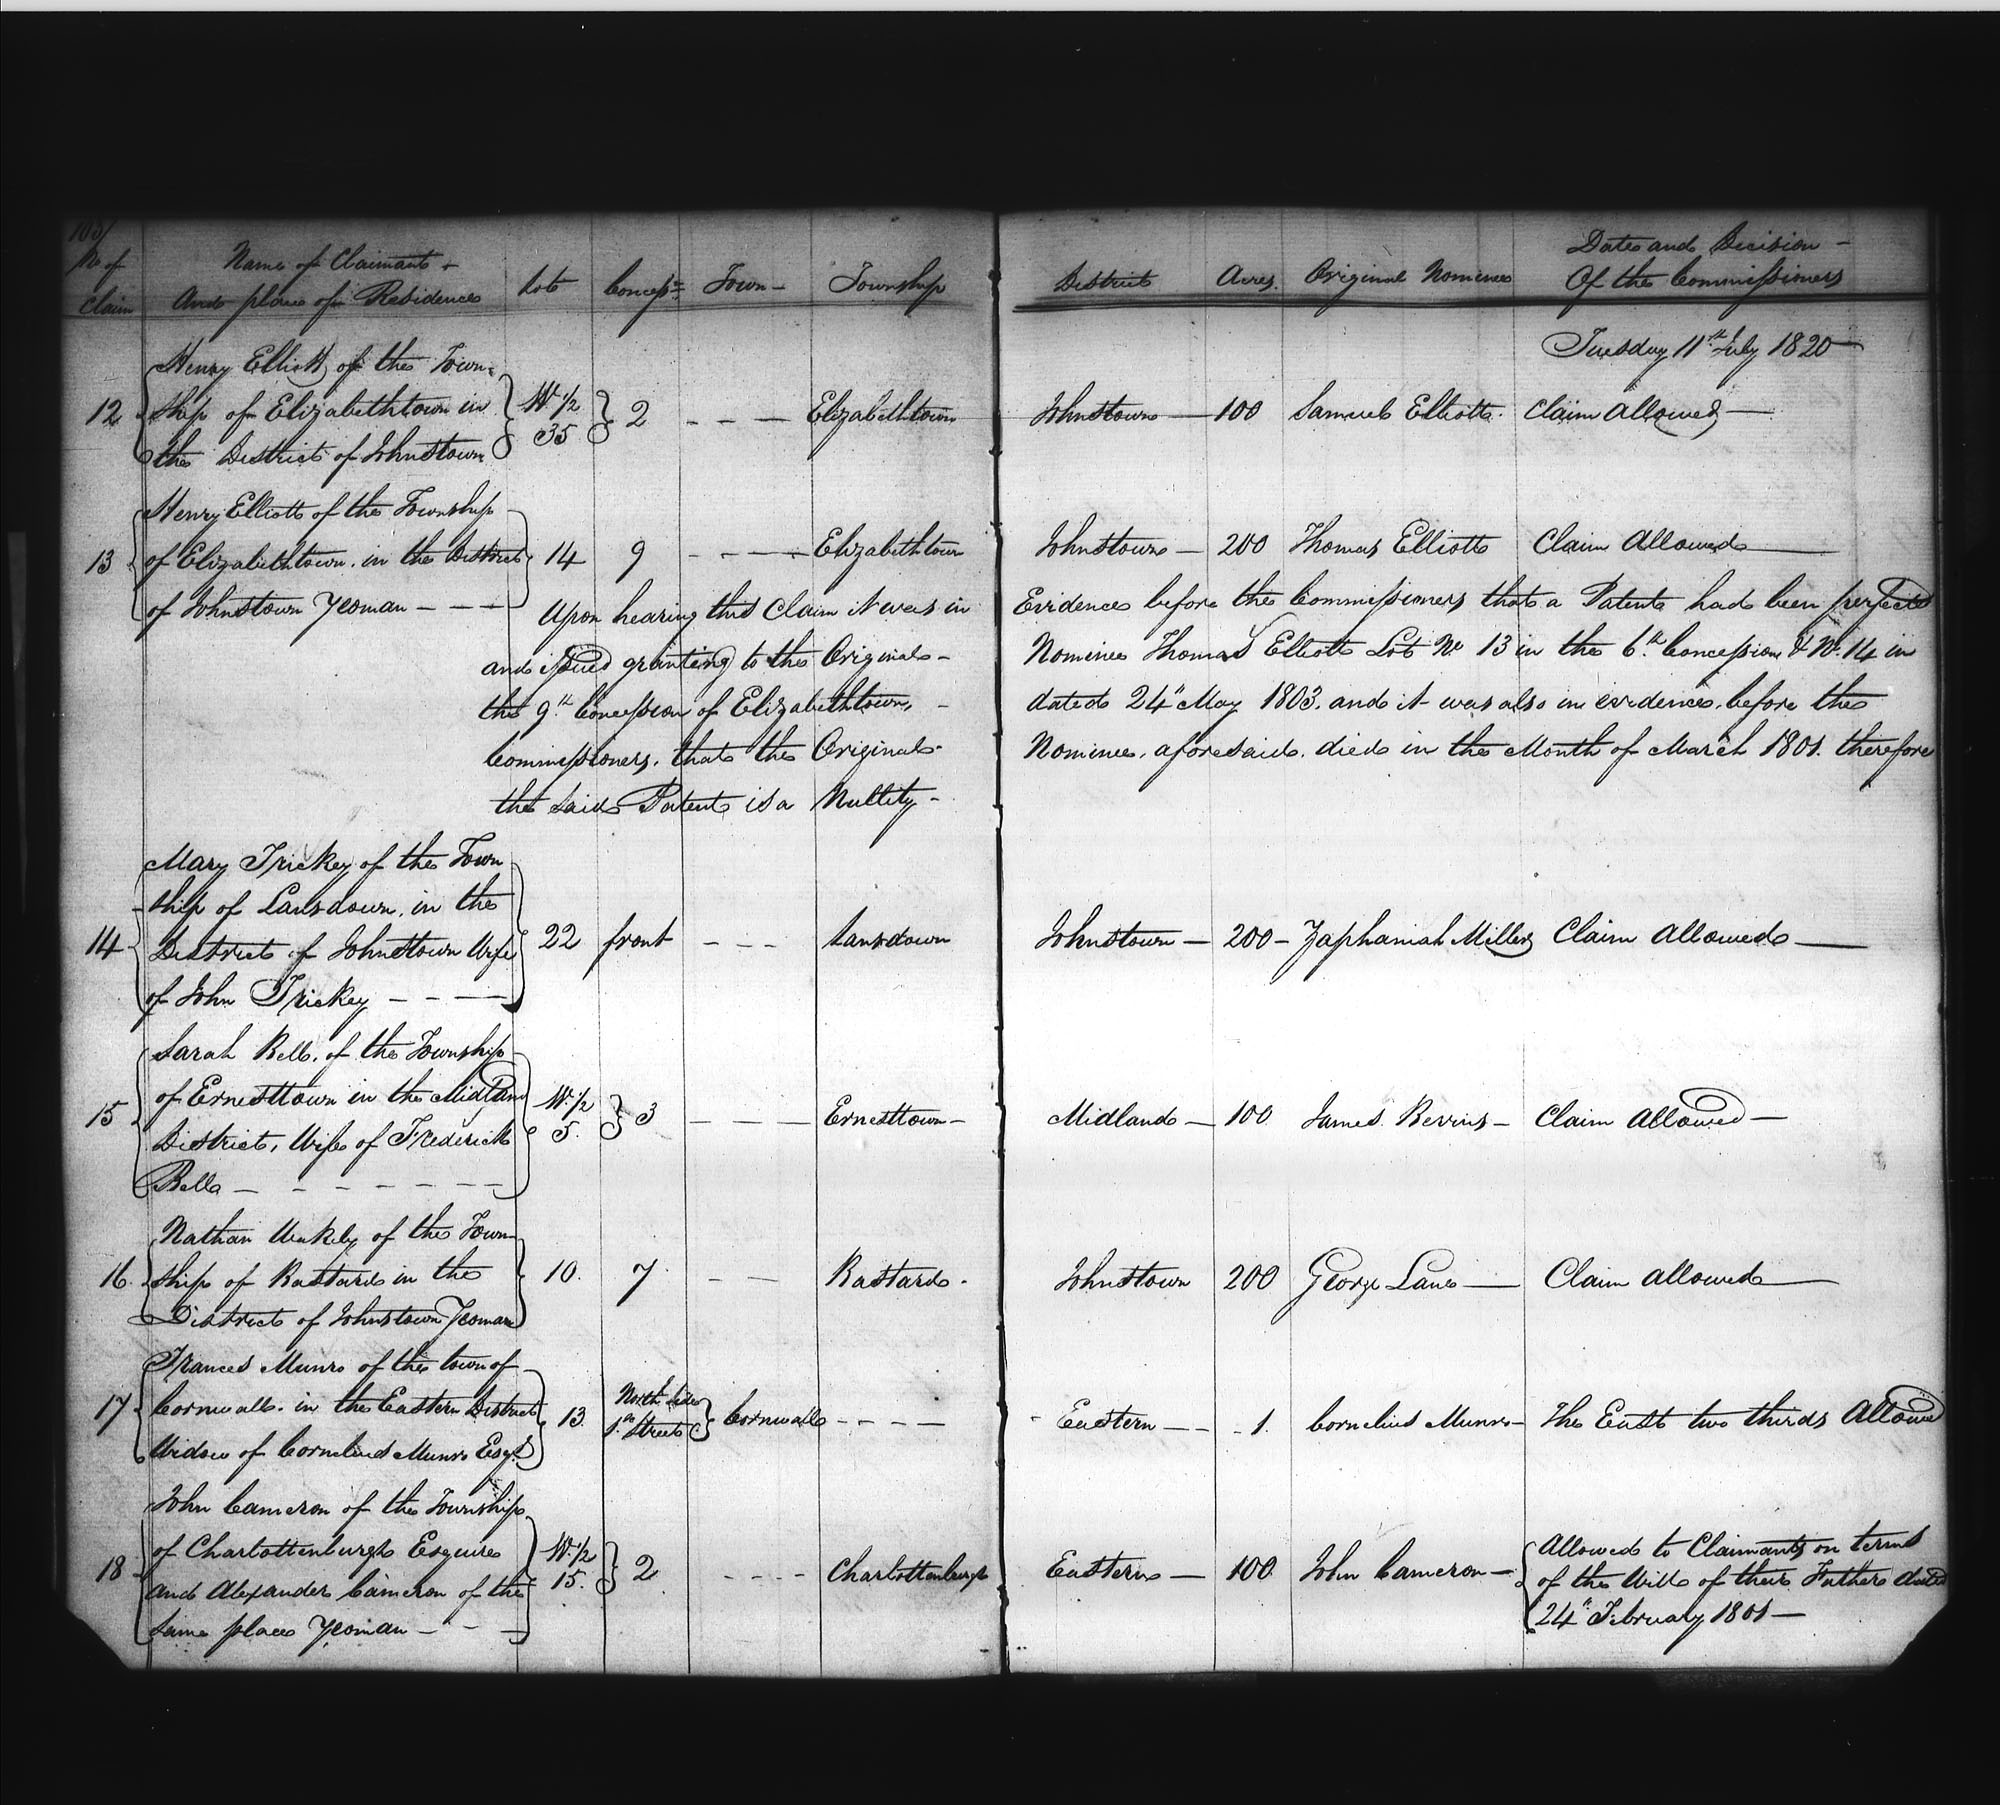 No of Claim
Name of Claimant + And place of Residence
Lot
Concessn
Town
Township
District
Acres
Original Nominee
Date and Decision - Of the Commissioners
Tuesday 11th July 1820
12
Henry Elliott of the Town-
ship of Elizabethtown in
the District of Johnstown
W. 1/2
35
2
Elizabethtown
Johnstown
100
Samuel Elliott.
Claim allowed
13
Henry Elliott of the Township
of Elizabethtown. in the District
of Johnstown Yeoman
14
9
Elizabethtown
Johnstown
200
Thomas Elliott
Claim Allowed
Upon hearing this Claim it was in Evidence before the Commissioners that a Patent had been perfected
and issued granting to the Original Nominee Thomas Elliott Lot No 13 in the 6th Concession & No. 14 in
the 9th Concession of Elizabethtown, dated 24th May 1803. and it was also in evidence. before the
Commissioners. that the Original Nominee. aforesaid. died in the Month of March 1801. therefore
the said Patent is a Nullity -
14
Mary Trickey of the Town
ship of Lansdown. in the
District of Johnstown Wife
of John Trickey
22
front
Lansdown
Johnstown
200
Zaphaniah Miller
Claim Allowed
15
Sarah Bell. of the Township
of Ernesttown in the Midland
District, Wife of Frederick
Bell
W. 1/2
5.
3
Ernesttown
Midland
100
James Bevins
Claim Allowed
16.
Nathan Wakely of the Town
ship of Bastard in the
District of Johnstown Yeoman
10.
7
Bastard.
Johnstown
200
George Lane
Claim allowed
17
Frances Munro of the town of
Cornwall. in the Eastern District
Widow of Cornelius Munro Esqr
13
North side
1st Street
Cornwall
Eastern
1.
Cornelius Munro
The East two thirds Allowed
18
John Cameron of the Township
of Charlottenburgh Esquire
and Alexander Cameron of the
same place Yeoman
W. 1/2
15.
2
Charlottenburgh
Eastern
100
John Cameron
Allowed to Claimants on terms
of the Will of their Father dated
24th February 1801